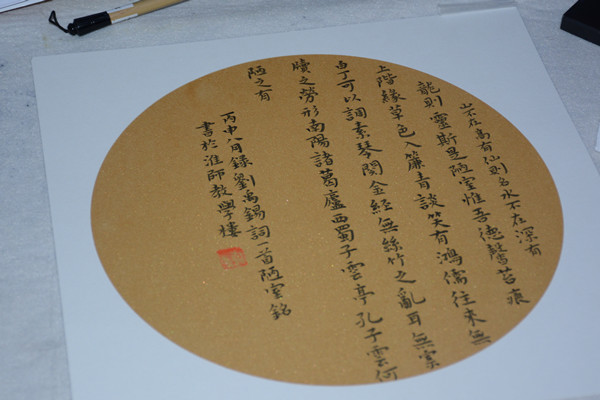 山不在高有仙則名水不在深有
龍則靈斯是陋室惟吾德馨苔痕
上階綠草色入簾青談笑有鴻儒往來無
白丁可以調素琴閱金經無絲竹之亂耳無案
牘之勞形南陽諸葛廬西蜀子雲亭孔子雲何
陋之有
丙申八月錄劉禹錫詞一首陋室銘
書於淮師教學樓